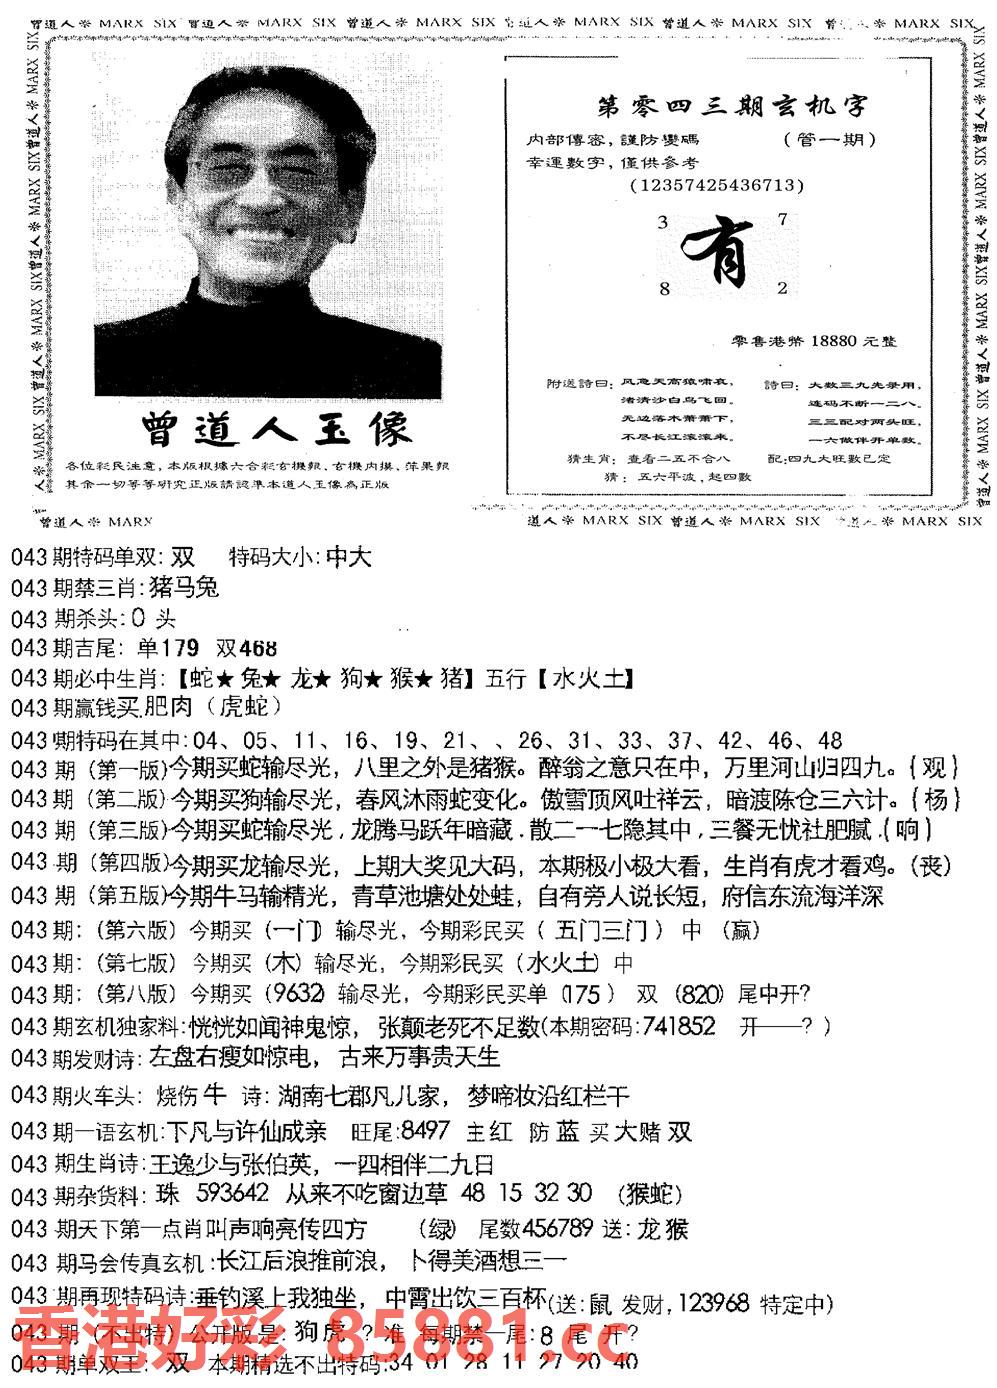 曾道人※ MARX SIX 曾道人※ MARX SIX 曾道人※ MARX SIX 曾道人※ MARX SIX 曾道人※ MARX SIX 曾道人※ MARX SIX
第零四三期玄机字
内部傳密，謹防變碼 （管一期）
幸運數字，僅供參考
(12357425436713)
3 7
有
8 2
零售港幣 18880 元整
附送詩曰：风急天高猿啸哀，
渚清沙白鸟飞回。
无边落木萧萧下，
不尽长江滚滚来。
詩曰：大数三九先录用，
连码不断一二八。
三三配对两头旺，
一六做伴开单数。
猜生肖：查看二五不合八 配:四九大旺數已定
猜：五六平波，起四數
曾道人玉像
各位彩民注意，本版根據六合彩玄機報、玄機内摸、萍果報
其余一切等等研究正版請認準本道人玉像為正版
曾道人※ MARX
道人※ MARX SIX 曾道人※ MARX SIX 曾道人※ MARX SIX
043 期特码单双: 双 特码大小:中大
043 期禁三肖:猪马兔
043 期杀头:0 头
043 期吉尾: 单179 双468
043 期必中生肖:【蛇★兔★龙★狗★猴★猪】五行【水火土】
043 期赢钱买.肥肉（虎蛇）
043 期特码在其中:04、05、11、16、19、21、、26、31、33、37、42、46、48
043 期（第一版)今期买蛇输尽光，八里之外是猪猴。醉翁之意只在中，万里河山归四九。{观}
043 期（第二版)今期买狗输尽光，春风沐雨蛇变化。傲雪顶风吐祥云，暗渡陈仓三六计。{杨}
043 期（第三版)今期买蛇输尽光,龙腾马跃年暗藏.散二一七隐其中,三餐无忧社肥腻.{响}
043 期（第四版)今期买龙输尽光，上期大奖见大码，本期极小极大看，生肖有虎才看鸡。(丧)
043 期（第五版)今期牛马输精光，青草池塘处处蛙，自有旁人说长短，府信东流海洋深
043 期:（第六版）今期买（一门）输尽光，今期彩民买（ 五门三门 ） 中 （赢）
043 期:（第七版）今期买（木）输尽光，今期彩民买（水火土）中
043 期:（第八版）今期买（9632）输尽光，今期彩民买单（175 ） 双 （820）尾中开?
043 期玄机独家料:恍恍如闻神鬼惊， 张颠老死不足数(本期密码:741852 开——? )
043 期发财诗:左盘右瘦如惊电， 古来万事贵天生
043 期火车头: 烧伤 牛 诗: 湖南七郡凡几家， 梦啼妆沿红栏干
043 期一语玄机:下凡与许仙成亲 旺尾:8497 主红 防 蓝 买大赌 双
043 期生肖诗:王逸少与张伯英，一四相伴二九日
043 期杂货料: 珠 593642 从来不吃窗边草 48 15 32 30 （猴蛇）
043 期天下第一点肖叫声响亮传四方 （绿） 尾数456789 送:龙猴
043 期马会传真玄机:长江后浪推前浪， 卜得美酒想三一
043 期再现特码诗:垂钓溪上我独坐， 中霄出饮三百杯(送:鼠 发财,123968 特定中)
043 期（不出特）公开版是: 狗虎 ? 准 每期禁一尾:8 尾 开?
043 期单双王: 双 本期精选不出特码:34 01 28 11 27 20 40
香港好彩 85881.cc